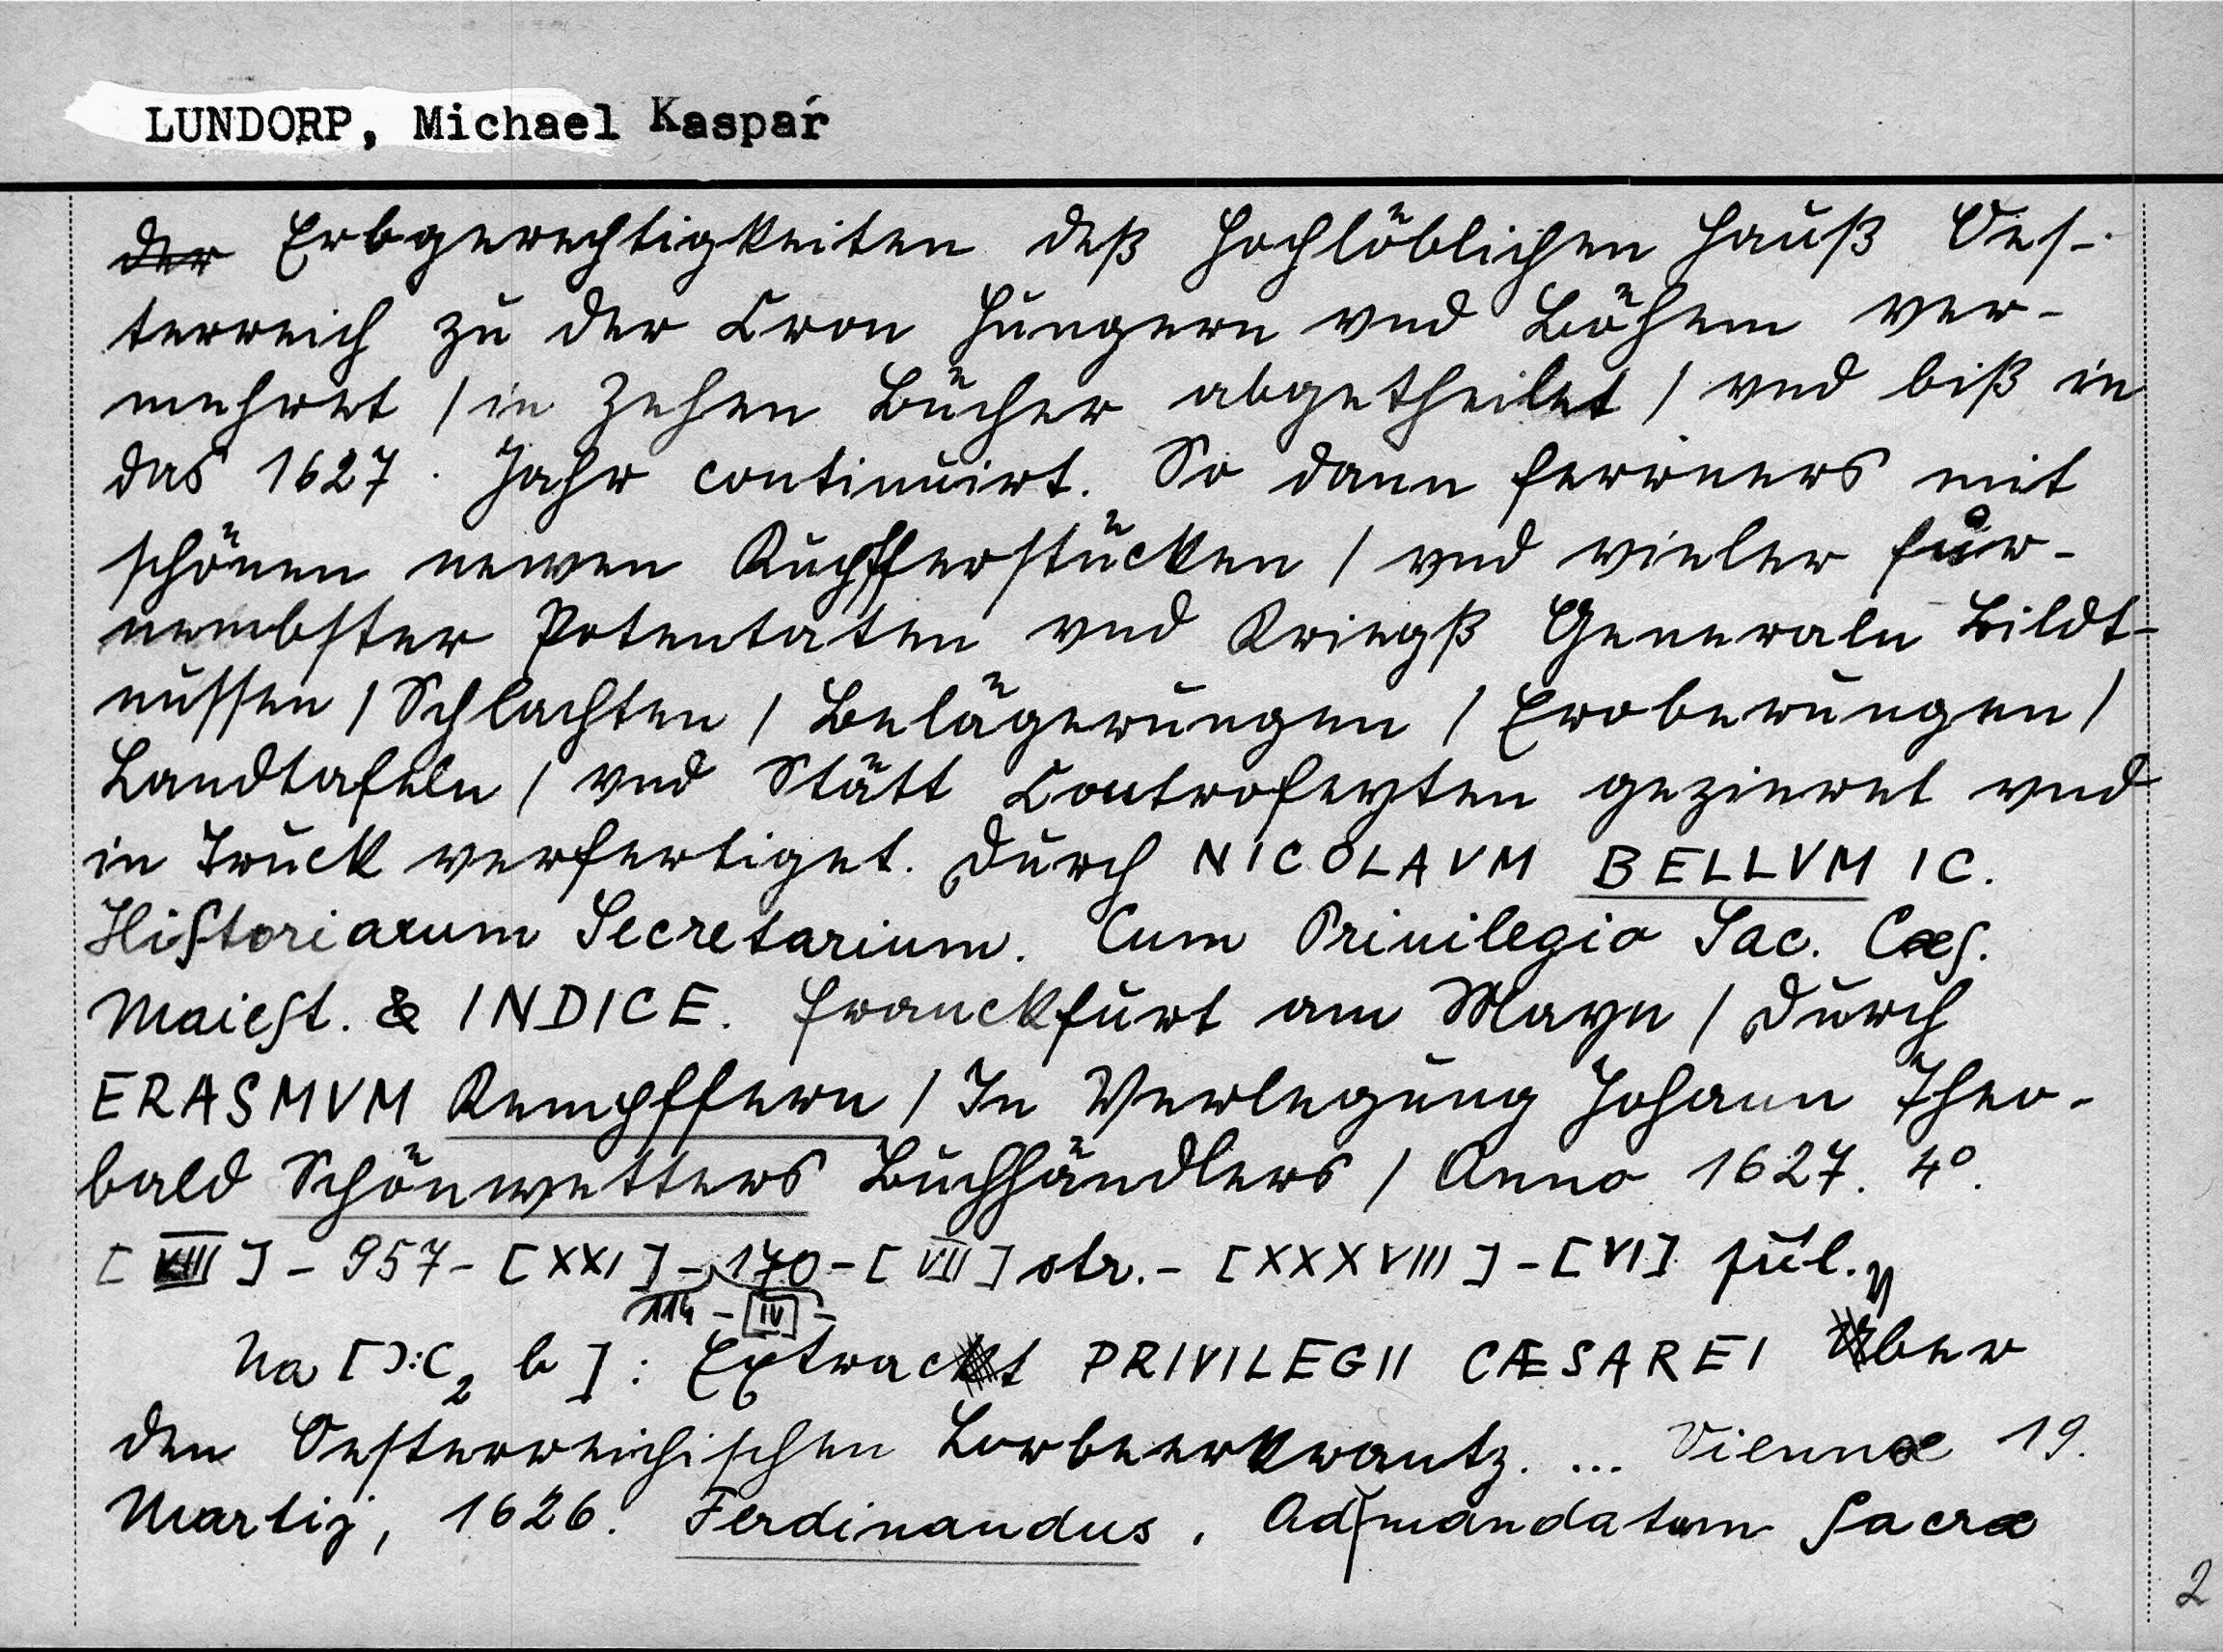 LUNDORP, Michael Kaspar
der Erbgerechtigkeiten deß Hochlöblichen Hauß Oes-
terreich zu der Cron Hungern vnd Böhem ver-
mehret / in Zehen Bücher abgetheilet / vnd biß in
das 1627. Jahr continuirt. So dann ferrners mit
schönen newen Kupfferstücken / vnd vieler für-
nembster Potentaten vnd Kriegß Generaln Bildt-
nussen / Schlachten / Belägerungen / Eroberungen /
Landtafeln / vnd Stätt Contrafeyten gezieret vnd
in Truck verfertiget. Durch NICOLAVM BELLVM IC.
Hiſtoriarum Secretarium. Cum Priuilegio Sac. Cæſ.
Maieſt. & INDICE. Franckfurt am Mayn / Durch
ERASMVM Kempffern / In Verlegung Johann Theo-
bald Schönwetters Buchhändlers / Anno 1627. 4°.
[VIII] - 957 - [XXI] - 170 - [VII] str. - [XXXVIII] - [VI] pul.
114 - [IV] -
Na [):( 2 b]: Extract PRIVILEGII CÆSAREI Vber
den Oesterreichischen Lorbeerkrantz. ... Viennæ 19.
Martij, 1626. Ferdinandus. Ad mandatum ſacræ
2